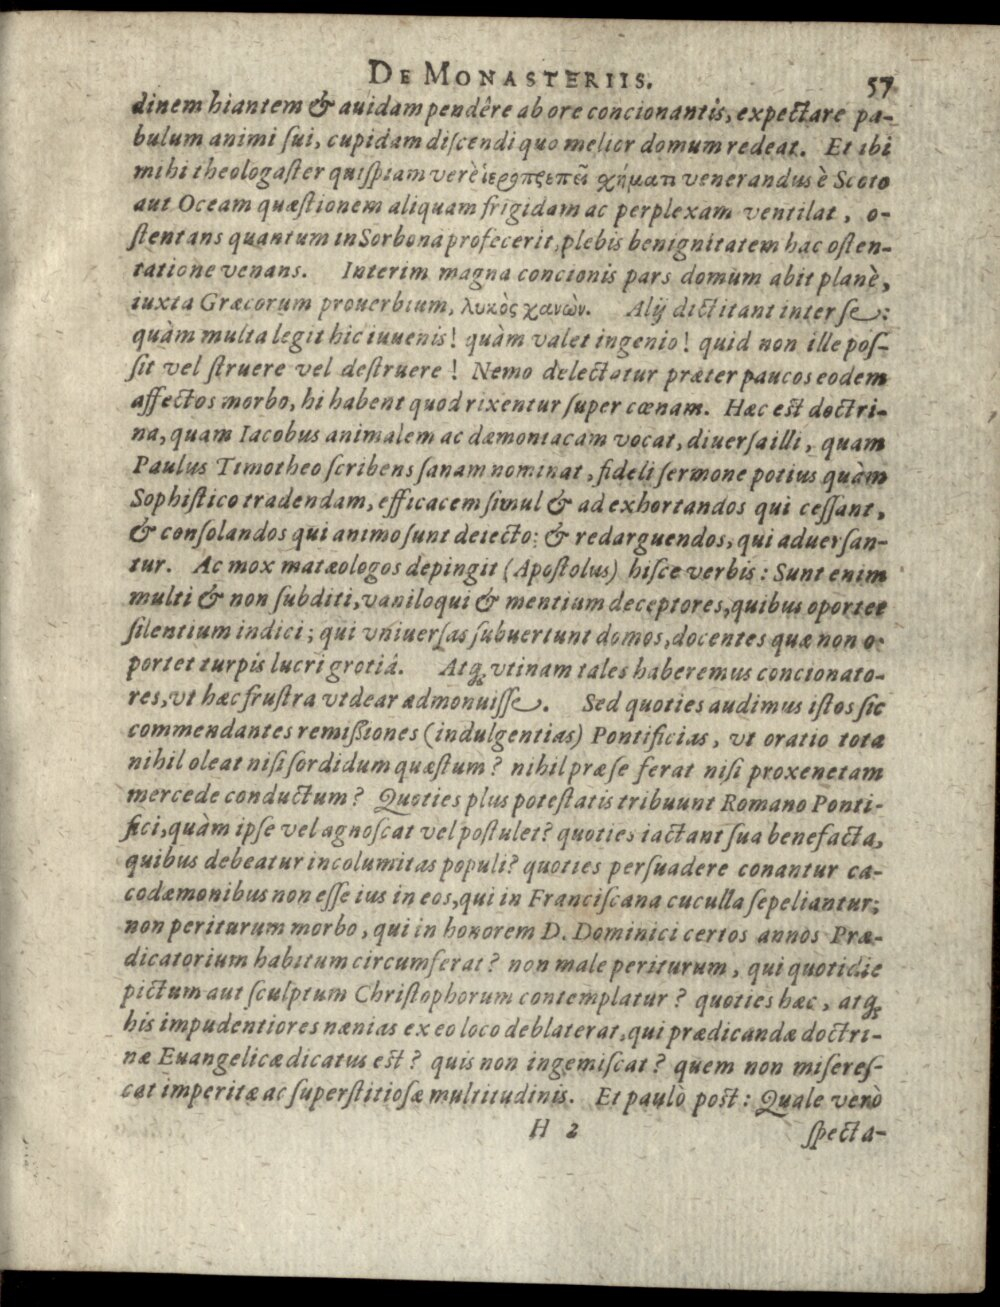 DE MONASTERIIS. 57
dinem hiantem & auidam pendêre ab ore concionantis, expectare pa-
bulum animi ſui, cupidam diſcendi quo melior domum redeat. Et ibi
mihi theologaſter quiſpiam verè ἱεροπρεπεῖ χήματι venerandus è Scoto
aut Oceam quæſtionem aliquam frigidam ac perplexam ventilat, o-
ſtentans quantum in Sorbona profecerit, plebis benignitatem hac oſten-
tatione venans. Interim magna concionis pars domum abit planè,
iuxta Græcorum prouerbium, λυκὸς χανὼν. Alij dictitant inter ſe:
quàm multa legit hic iuuenis! quàm valet ingenio! quid non ille poſ-
ſit vel ſtruere vel deſtruere! Nemo delectatur præter paucos eodem
affectos morbo, hi habent quod rixentur ſuper cœnam. Hæc eſt doctri-
na, quam Iacobus animalem ac dæmoniacam vocat, diuerſa illi, quam
Paulus Timotheo ſcribens ſanam nominat, fideli ſermone potius quàm
Sophiſtico tradendam, efficacem ſimul & ad exhortandos qui ceſſant,
& conſolandos qui animo ſunt deiecto: & redarguendos, qui aduerſan-
tur. Ac mox matæologos depingit (Apoſtolus) hiſce verbis: Sunt enim
multi & non ſubditi, vaniloqui & mentium deceptores, quibus oportet
ſilentium indici; qui vniuerſas ſubuertunt domos, docentes quæ non o-
portet turpis lucri grotiâ. Atq; vtinam tales haberemus concionato-
res, vt hæc fruſtra videar ædmonuiſſe. Sed quoties audimus iſtos ſic
commendantes remiſſiones (indulgentias) Pontificias, vt oratio tota
nihil oleat niſi ſordidum quæſtum? nihil præ ſe ferat niſi proxenetam
mercede conductum? Quoties plus poteſtatis tribuunt Romano Ponti-
fici, quàm ipſe vel agnoſcat vel poſtulet? quoties iactant ſua benefacta,
quibus debeatur incolumitas populi? quoties perſuadere conantur ca-
codæmonibus non eſſe ius in eos, qui in Franciſcana cuculla ſepeliantur;
non periturum morbo, qui in honorem D. Dominici certos annos Præ-
dicatorium habitum circumferat? non male periturum, qui quotidie
pictum aut ſculptum Chriſtophorum contemplatur? quoties hæc, atq;
his impudentiores nænias ex eo loco deblaterat, qui prædicandæ doctri-
næ Euangelicæ dicatus eſt? quis non ingemiſcat? quem non miſereſ-
cat imperitæ ac ſuperſtitioſæ multitudinis. Et paulò poſt: Quale verò
H 2 ſpecta-